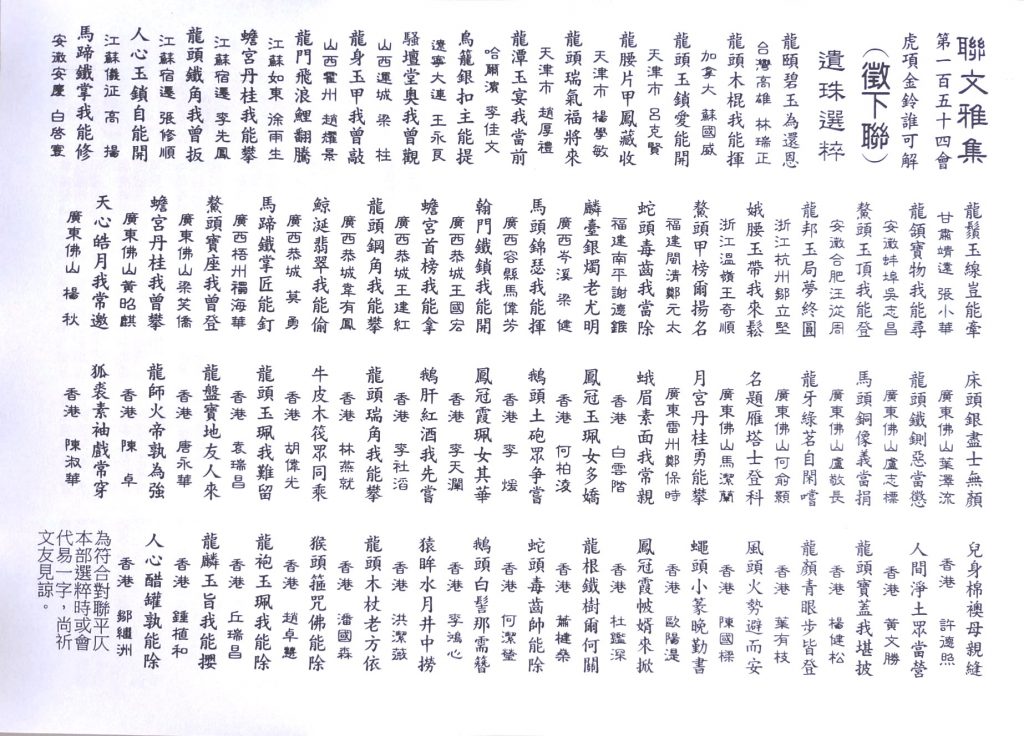 聯文雅集
第一百五十四會
虎項金鈴誰可解
(徵下聯)
遺珠選粹
龍頷碧玉為還恩
台灣高雄 林瑞正
龍頭木棍我能揮
加拿大 蘇國威
龍頭玉鎖愛能開
天津市 呂克賢
龍腰片甲鳳藏收
天津市 楊學敏
龍頭瑞氣福將來
天津市 趙厚禮
龍潭玉宴我當前
哈爾濱 李佳文
鳥籠銀扣主能提
遼寧大連 王永良
騷壇堂奧我曾觀
山西運城 梁柱
龍身玉甲我曾敲
山西霍州 趙耀景
龍門飛浪鯉翻騰
江蘇如東 涂雨生
蟾宮丹桂我能攀
江蘇宿遷 李先鳳
龍頭鐵角我曾扳
江蘇宿遷 張修順
人心玉鎖自能開
江蘇儀征 高揚
馬蹄鐵掌我能修
安徽安慶 白啓寰
龍鬚玉線豈能牽
甘肅靖遠 張小華
龍領寶物我能尋
安徽蚌埠吳志昌
鰲頭玉頂我能登
安徽合肥汪從周
龍邦玉局夢終圓
浙江杭州鄒立堅
娥腰玉帶我來鬆
浙江溫嶺王奇順
鰲頭甲榜爾揚名
福建閩清鄭元太
蛇頭毒齒我當除
福建南平謝德鎡
麟臺銀燭老尤明
廣西岑溪 梁健
馬頭錦瑟我能揮
廣西容縣馬偉芳
翰門鐵鎖我能開
廣西恭城王國宏
蟾宮首榜我能拿
廣西恭城王建紅
龍頭鋼角我能攀
廣西恭城韋有鳳
鯨涎翡翠我能偷
廣西恭城 莫勇
馬蹄鐵掌匠能釘
廣西梧州禤海華
鰲頭寶座我曾登
廣東佛山梁笑僑
蟾宮丹桂我曾攀
廣東佛山黃昭麒
天心皓月我常邀
廣東佛山 楊秋
床頭銀盡士無顏
廣東佛山葉澤流
龍頭鐵鍘惡當懲
廣東佛山盧志標
馬頭銅像義當捐
廣東佛山盧敬長
龍牙綠茗自閑嚐
廣東佛山何俞顥
名題雁塔士登科
廣東佛山馬潔蘭
月宮丹桂勇能攀
廣東雷州鄭保時
蛾眉素面我常親
香港 白雲階
鳳冠玉珮女多嬌
香港 何柏淩
鵝頭土砲眾爭嘗
香港 李煖
鳳冠霞珮女其華
香港 李天瀾
鵝肝紅酒我先嘗
香港 李社滔
龍頭瑞角我能攀
香港 林燕就
牛皮木筏眾同乘
香港 胡偉光
龍頭玉珮我難留
香港 袁瑞昌
龍盤寶地友人來
香港 唐永華
龍師火帝孰為強
香港 陳卓
狐裘素袖戲常穿
香港 陳淑華
兒身棉襖母親縫
香港 許適照
人間淨土眾當營
香港 黃文勝
龍頭寶蓋我堪披
香港 楊健松
龍顏青眼步皆登
香港 葉有枝
風頭火勢避而安
香港 陳國樑
蠅頭小篆晚勤書
香港 歐陽湜
鳳冠霞帔婿來掀
香港 杜鑑深
龍根鐵樹爾何關
香港 蕭楗桑
蛇頭毒齒帥能除
香港 何潔瑩
鵝頭白髻那需簪
香港 李鴻心
猿眸水月井中撈
香港 洪潔薇
龍頭木杖老方依
香港 潘國森
猴頭箍咒佛能除
香港 趙卓慧
龍袍玉珮我能除
香港 丘瑞昌
龍麟玉旨我能攖
香港 鍾植和
人心醋罐孰能除
香港 鄒繼洲
為符合對聯平仄
本部選粹時或會
代易一字，尚祈
文友見諒。